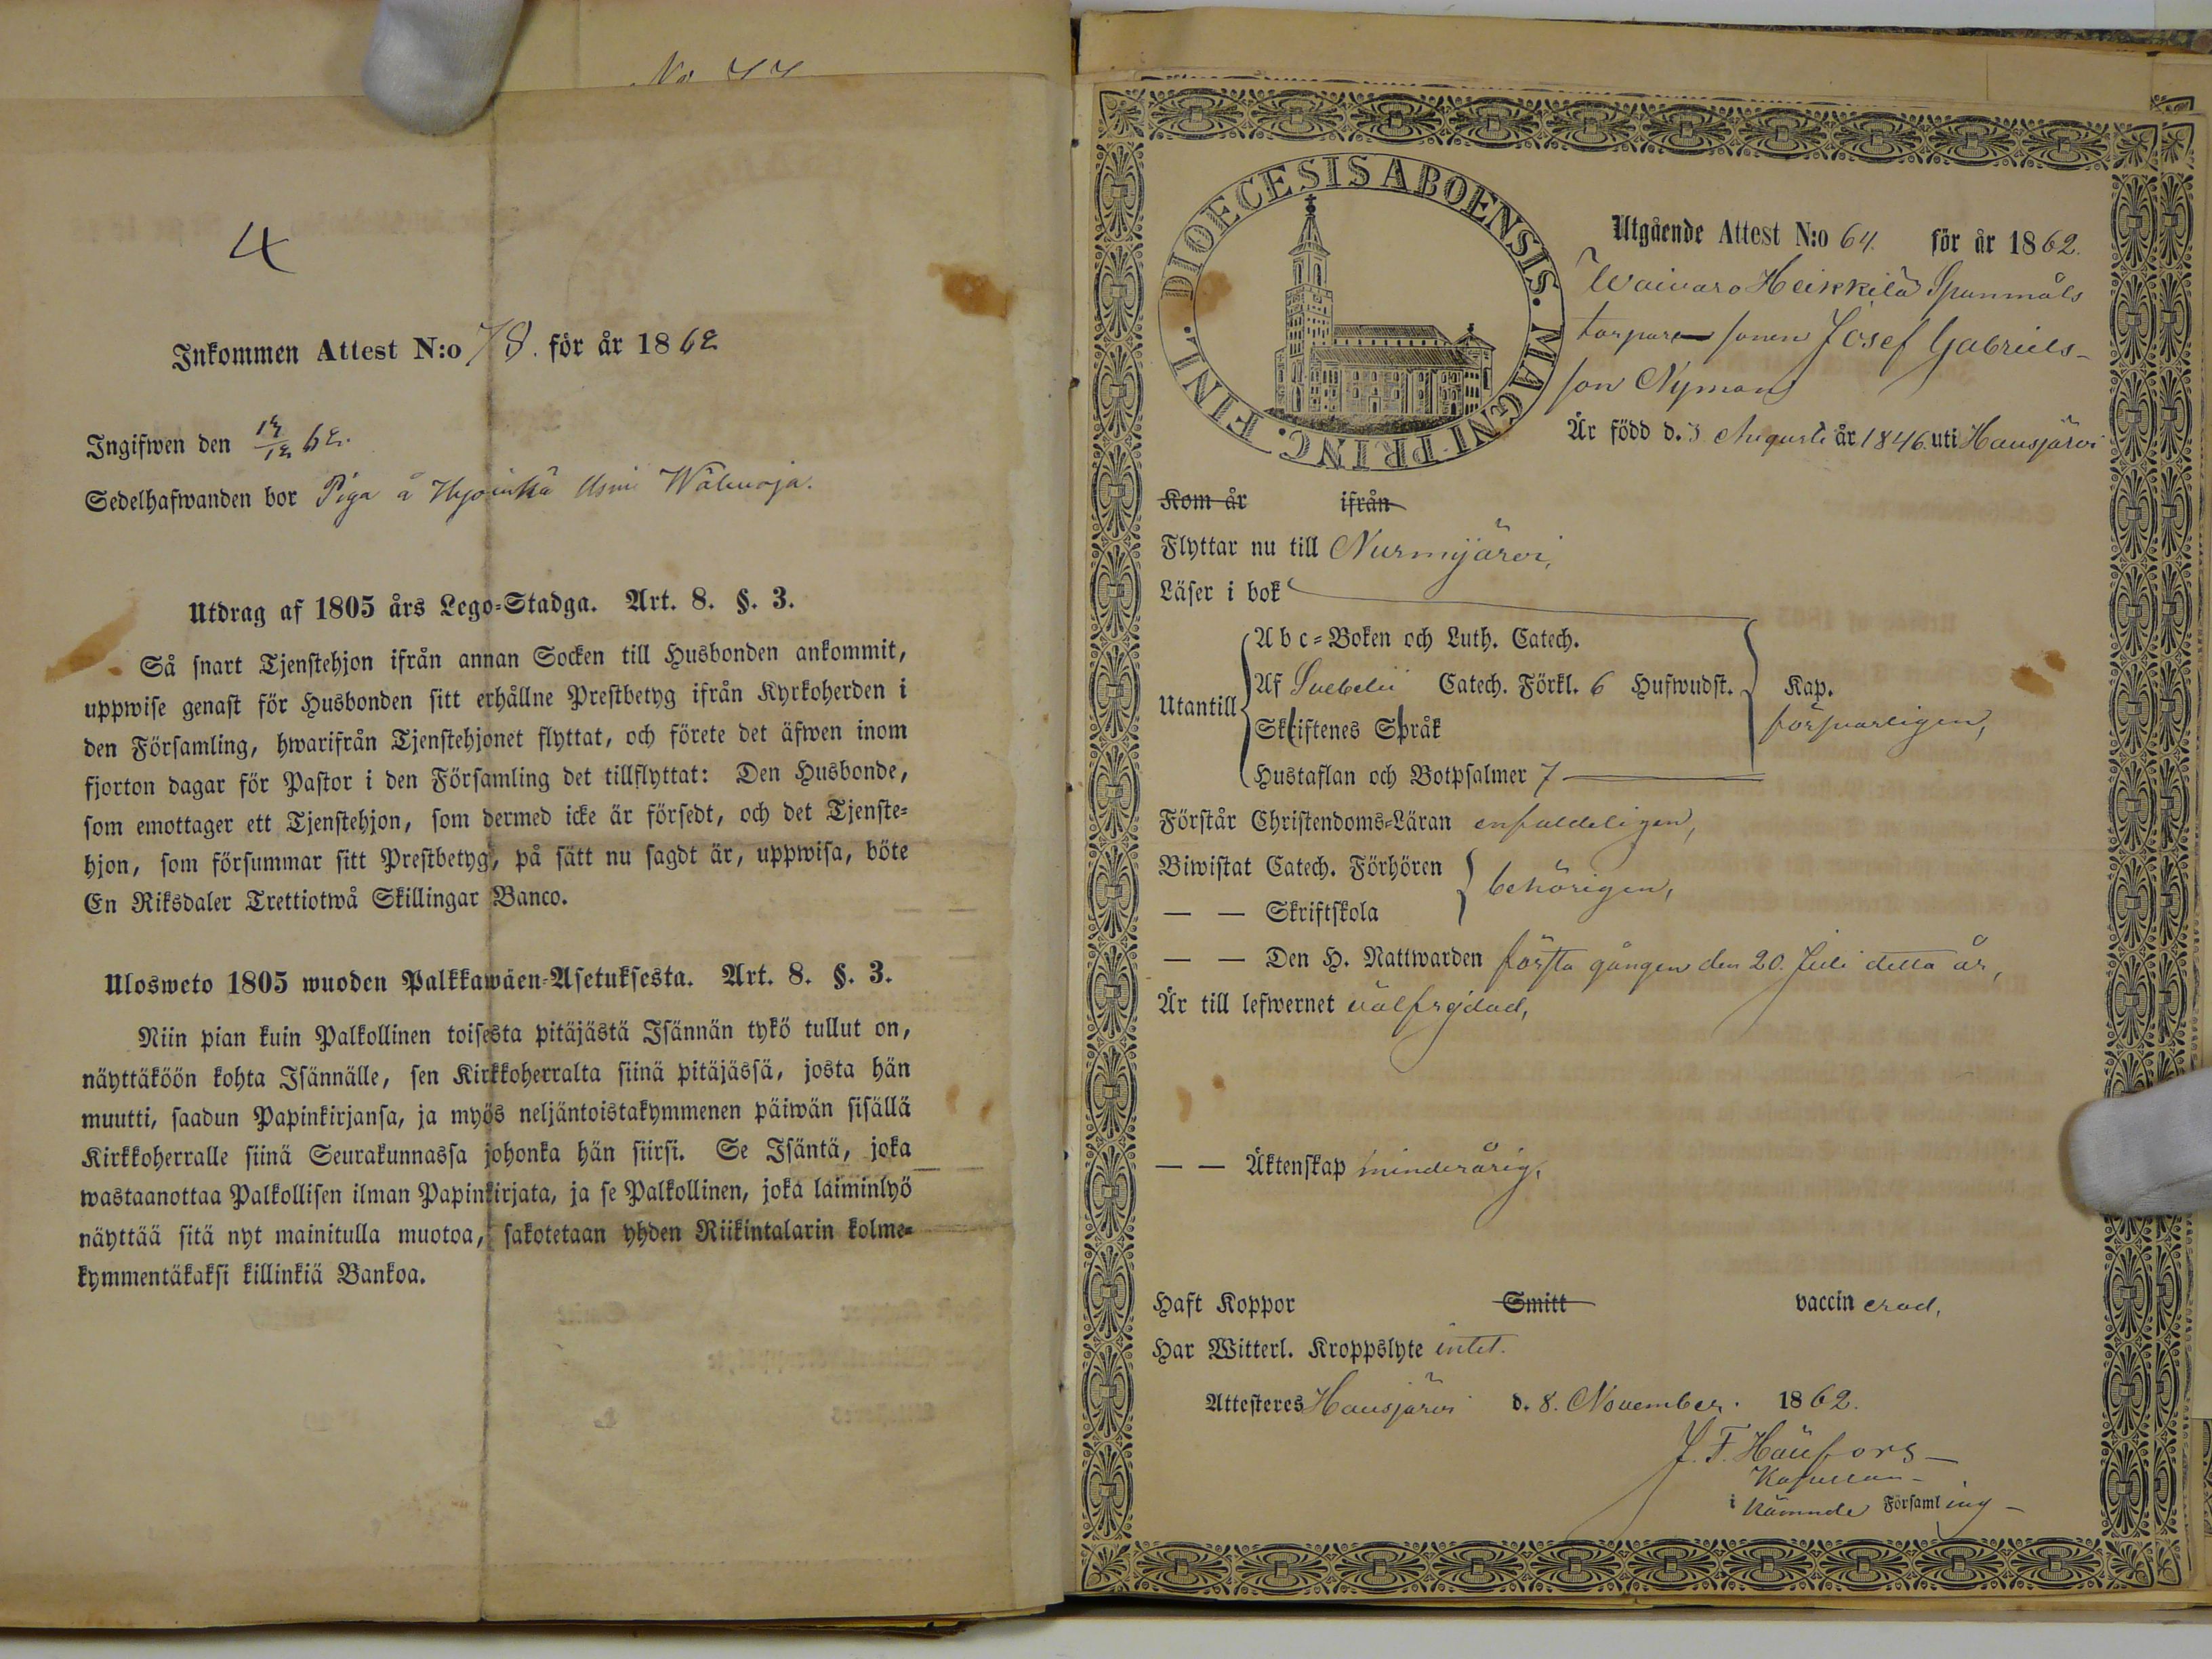 No 77
4
Inkommen Attest N:o 78. för år 1862
Ingifwen den 14/12 62.
Sedelhafwanden bor Piga å Hyvinkä
Utdrag af 1805 års Lego-Stadga. Art. 8. §. 3.
Så snart Tjenstehjon ifrån annan Socken till Husbonden ankommit,
uppwise genast för Husbonden sitt erhållne Prestbetyg ifrån Kyrkoherden i
den Församling, hwarifrån Tjenstehjonet flyttat, och förete det äfwen inom
fjorton dagar för Pastor i den Församling det tillflyttat: Den Husbonde,
som emottager ett Tjenstehjon, som dermed icke är försedt, och det Tjenste-
hjon, som försummar sitt Prestbetyg, på sätt nu sagdt är, uppwisa, böte
En Riksdaler Trettiotwå Skillingar Banco.
Ulosweto 1805 wuoden Palkkawäen-Asetuksesta. Art. 8. §. 3.
Niin pian kuin Palkollinen toisesta pitäjästä Isännän tykö tullut on,
näyttäköön kohta Isännälle, sen Kirkkoherralta siinä pitäjässä, josta hän
muutti, saadun Papinkirjansa, ja myös neljäntoistakymmenen päiwän sisällä
Kirkkoherralle siinä Seurakunnassa johonka hän siirsi. Se Isäntä, joka
wastaanottaa Palkollisen ilman Papinkirjata, ja se Palkollinen, joka laiminlyö
näyttää sitä nyt mainitulla muotoa, sakotetaan yhden Riikintalarin kolme-
kymmentäkaksi killinkiä Bankoa.
DIOECESIS ABOENSIS. MAGNI PRINC. FINL.
Utgående Attest N:o 64. för år 1862.
Waiwaro Heikkilä Spanmåls
torpare sonen Josef Gabriels-
son Nyman
Är född d. 3 Augusti år 1846. uti Hausjärvi
Kom år ifrån
Flyttar nu till Nurmijärvi,
Läser i bok
Abc-Boken och Luth. Catech.
Utantill Af Svebelii Catech. Förkl. 6 Hufwudst. Kap.
Skriftenes Språk försvarligen,
Hustaflan och Botpsalmer 7
Förstår Christendoms-Läran enfaldeligen,
Biwistat Catech. Förhören behörigen,
— — Skriftskola
— — Den H. Nattwarden första gången den 20. Juli detta år,
Är till lefwernet välfrejdad,
— — Äktenskap minderårig,
Haft Koppor Smitt vaccinerad,
Har Witterl. Kroppslyte intet.
Attesteres Hausjärvi d. 8. November. 1862.
J. F. Häufors
Kapellan
i nämnde Församling